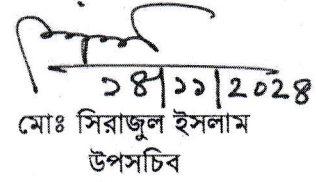 ১৪|১১|২০২৪
মোঃ সিরাজুল ইসলাম
উপসচিব